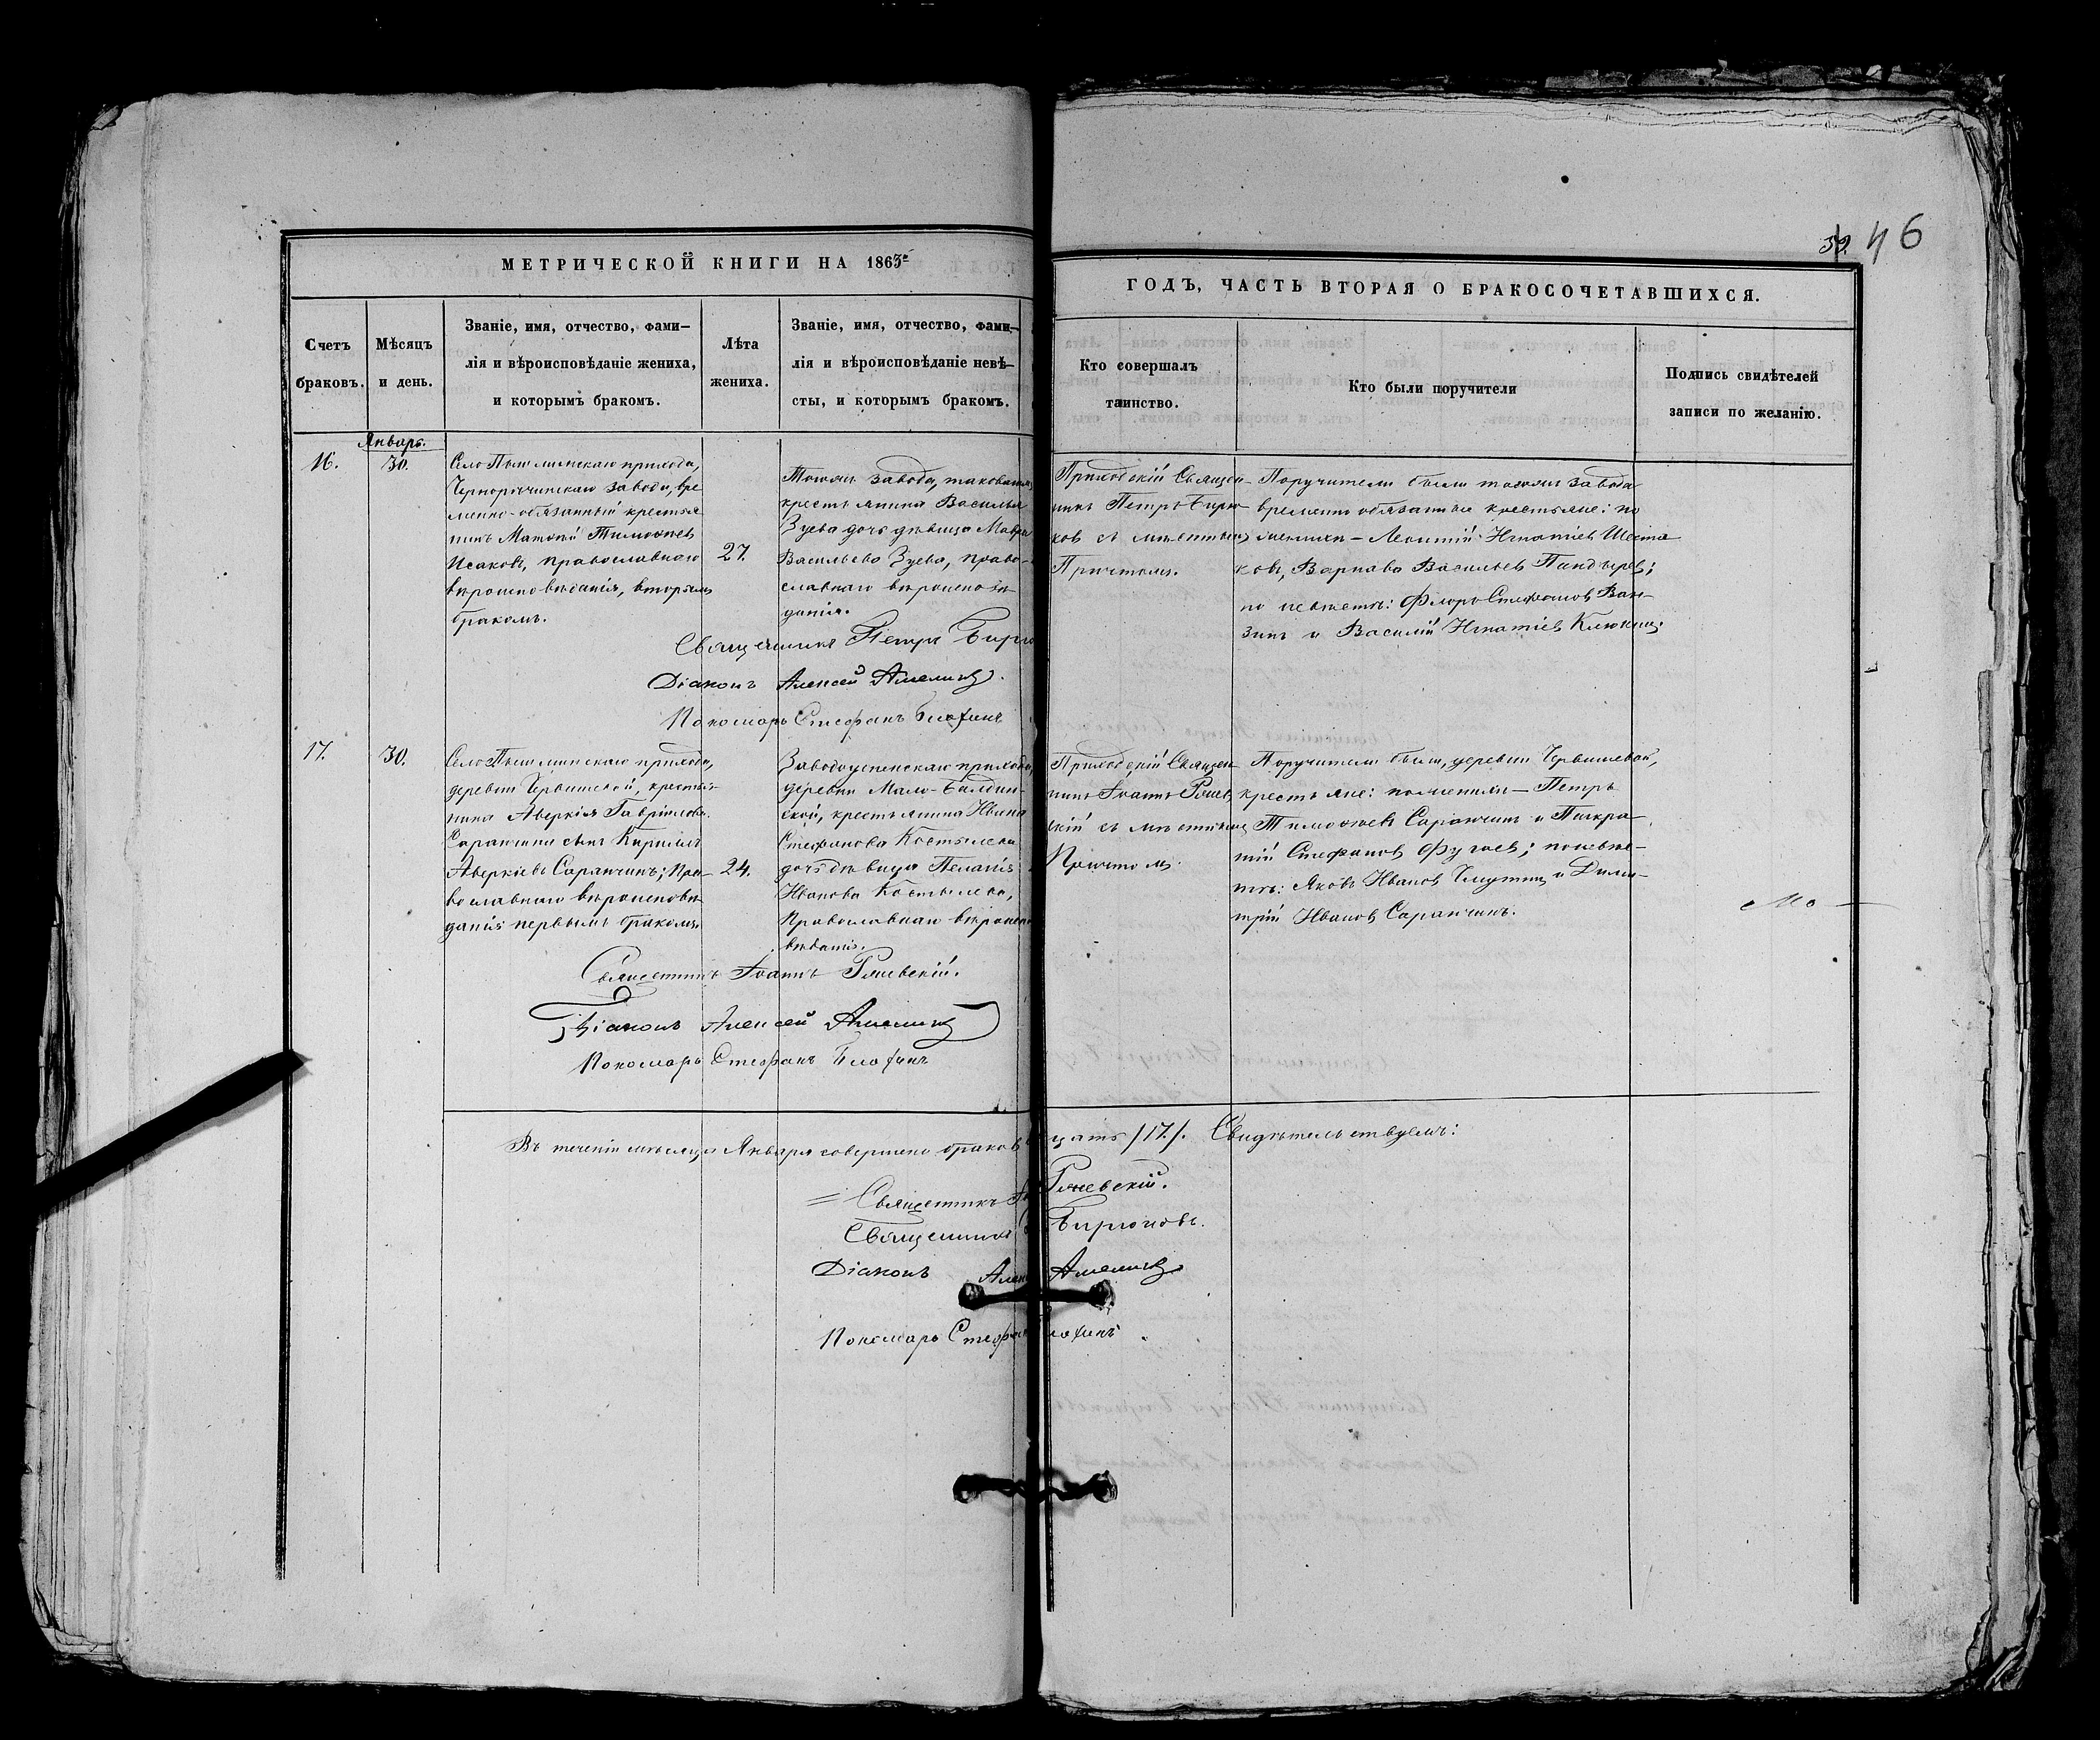 39. 46
МЕТРИЧЕСКОЙ КНИГИ НА 1863й
ГОДЪ, ЧАСТЬ ВТОРАЯ О БРАКОСОЧЕТАВШИХСЯ.
Счетъ
браковъ.
Мѣсяцъ
и день.
Званіе, имя, отчество, фами–
лія и вѣроисповѣданіе жениха,
и которымъ бракомъ.
Лѣта
жениха.
Званіе, имя, отчество, фами–
лія и вѣроисповѣданіе невѣ–
сты, и которымъ бракомъ.
Кто совершалъ
таинство.
Кто были поручители
Подпись свидѣтелей
записи по желанію.
Январь.
16.
30.
Село Пышминскаго прихода,
Черноречинскаго завода, вре
менно-обязанный крестья
нинъ Матѳій Тимоѳеевъ
Исаковъ, православнаго
вѣроисповѣданія, вторымъ
бракомъ.
27.
Тогожъ завода, таковагожъ
крестьянина Василья
Зуева дочь дѣвица Мавра
Васильева Зуева, право–
славнаго вѣроисповѣ
данія.
Приходскій Священ–
никъ Петръ Бирю
ковъ съ мѣстнымъ
Причтомъ.
Поручители были тогожъ завода
временно обязанные крестьяне: по
женихѣ – Леонтій Игнатіевъ Шеста
ковъ, Варнава Васильевъ Пандыревъ;
по невѣстѣ: Флоръ Стефановъ Вак–
зинъ и Василій Игнатіевъ Клюкинъ.
Священникъ Петръ Бирю
Діаконъ Алексей Амелинъ.
Пономарь Стефанъ
17.
30.
Село Пышминскаго прихода,
деревни Червишевой, крестья–
нина Аверкія Гавріилова
Саранчина сынъ Кириллъ
Аверкіевъ Саранчинъ; Пра–
вославнаго вѣроисповѣ
данія первымъ бракомъ.
24.
Заводоуспенскаго прихода,
деревни Мало-Балдин–
ской, крестьянина Ивана
Стефанова Костылева
дочь дѣвица Пелагія
Иванова Костылева,
Православнаго вѣроиспо
вѣданія.
Приходскій Священ
никъ Іоаннъ Ряшев
скій съ мѣстнымъ
Причтомъ.
Поручители были, деревни Червишевой,
крестьяне: по женихѣ – Петръ
Тимоѳеевъ Саранчинъ и Панкра–
тій Стефановъ Фугаевъ; по невѣс–
тѣ: Яковъ Ивановъ и Дими–
трій Ивановъ Саранчинъ.
Священникъ Іоаннъ Ряшевскій.
Діаконъ Алексей Амелинъ
Пономарь Стефанъ
Въ теченіи мѣсяца Января совершено браковъ цать /17./. Свидѣтельствуемъ:
Священникъ Ряшевскій.
Священникъ Бирюковъ.
Діаконъ Алек Амелинъ
Пономарь Стефан